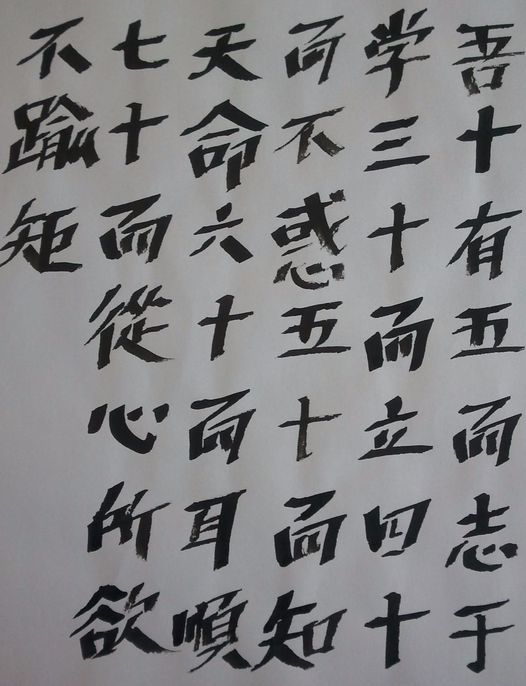 吾十有五而志于
学三十而立四十
而不惑五十而知
天命六十而耳順
七十而從心所欲
不踰矩